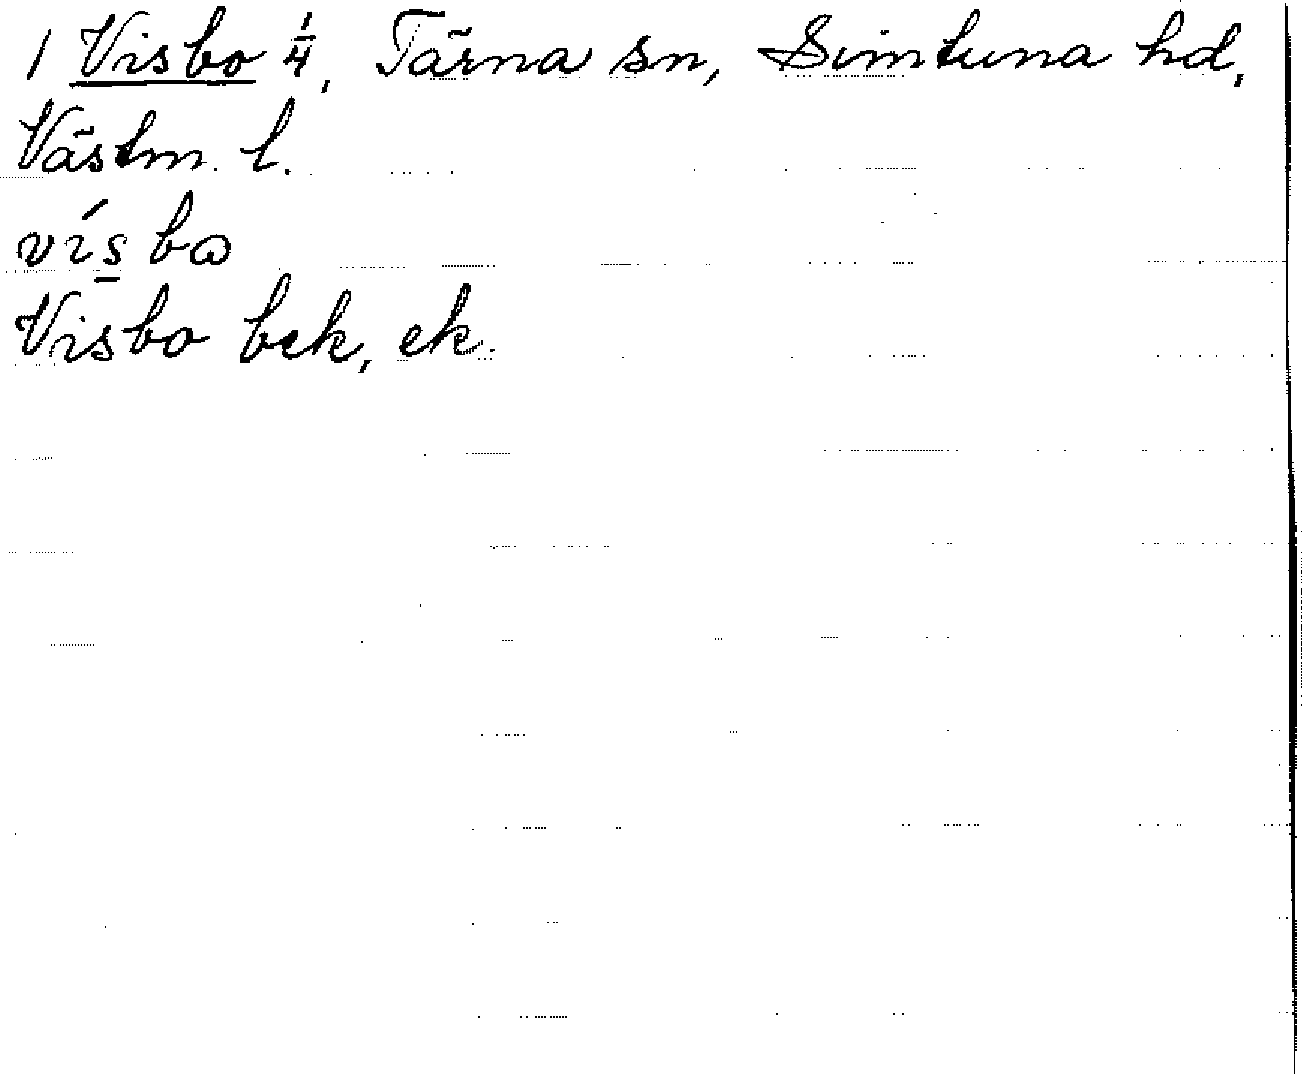 1 Visbo 1/4, Tärna sn, Simtuna hd,
Västm. l.
vísbɷ
Visbo bek, ek.